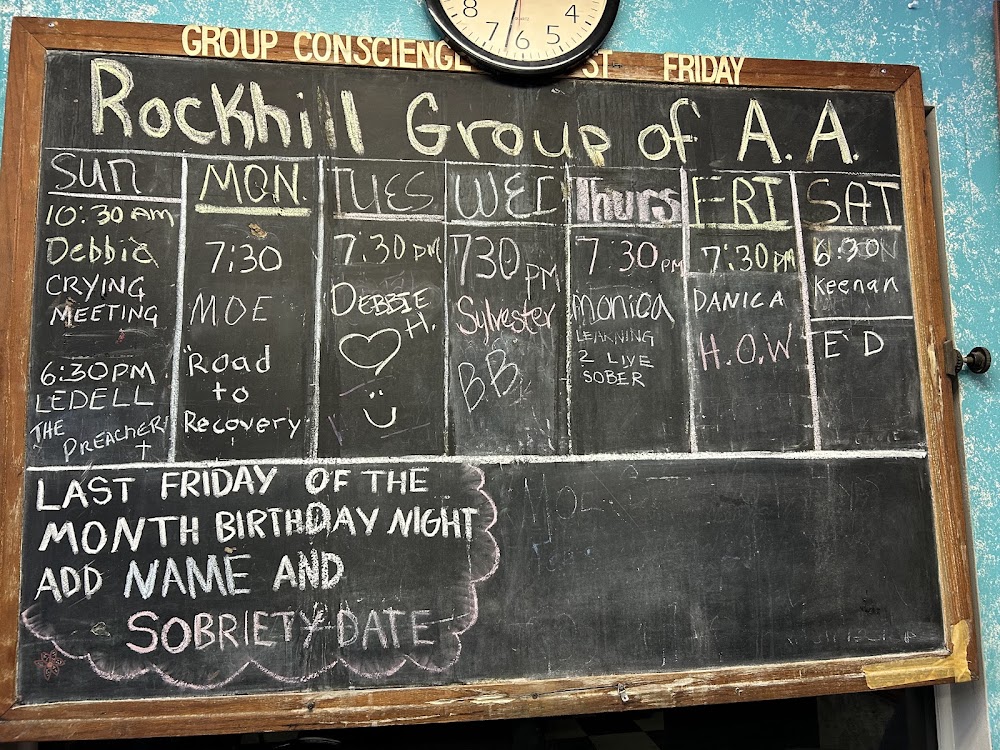 8 7 6 5 4
GROUP CONSCIENCE ST FRIDAY
Rockhill Group of A.A.
SUN
10:30 AM
Debbie
CRYING
MEETING
6:30PM
LEDELL
THE
PREACHER
MON.
7:30
MOE
Road
to
Recovery
TUES
7:30 PM
DEBBIE
H.
WED
730 PM
Sylvester
BB
Thurs
7:30 PM
monica
LEARNING
2 LIVE
SOBER
FRI
7:30PM
DANICA
H.O.W
SAT
6:30
Keenan
ED
LAST FRIDAY OF THE
MONTH BIRTHDAY NIGHT
ADD NAME AND
SOBRIETY DATE